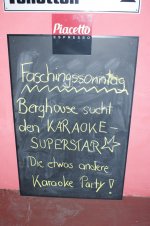 Piacetto
ESPRESSO
Faschingssonntag
Berghouse sucht
den KARAOKE-
SUPERSTAR
Die etwas andere
Karaoke Party!